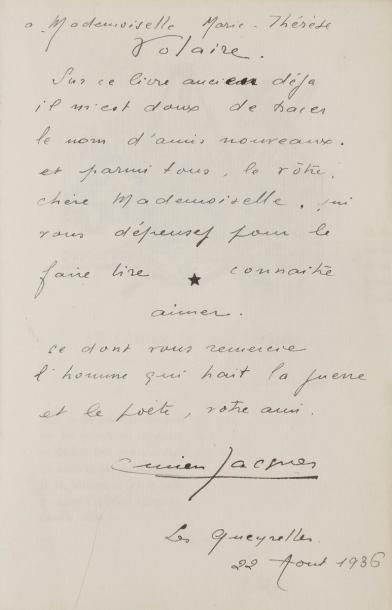 a Mademoiselle Marie-Thérèse
Volaire.
Sur ce livre ancien déjà
il m'est doux de tracer
le nom d'amis nouveaux.
et parmi tous, le vôtre,
chère Mademoiselle, qui
vous dépensez pour le
faire lire ★ connaître
aimer.
ce dont vous remercie
l'homme qui hait la guerre
et le poète, votre ami.
Lucien Jacques
Les Queyrelles.
22 Aout 1936